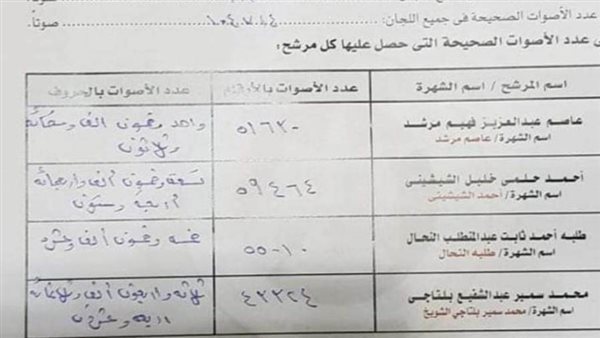 عدد الأصوات الصحيحة فى جميع اللجان: صوتاً.
عدد الأصوات الصحيحة التى حصل عليها كل مرشح:
اسم المرشح / اسم الشهرة عدد الأصوات بالأرقام عدد الأصوات بالحروف
عاصم عبدالعزيز فهيم مرشد ٥١٦٣٠ واحد وخمسون الف وستمائه
اسم الشهرة/ عاصم مرشد وثلاثون
أحمد حلمى خليل الشيشينى ٥٩٤٦٤ تسعة وخمسون ألف واربعمائه
اسم الشهرة/ أحمد الشيشينى أربعه وستون
طلبه أحمد ثابت عبدالمطلب النحال ٥٥٠١٠ خمسه وخمسون ألف وعشره
اسم الشهرة/ طلبه النحال
محمد سمير عبدالشفيع بلتاجي ٤٣٣٢٤ ثلاثه واربعون ألف وثلاثمائه
اسم الشهرة/ محمد سمير بلتاجي الشويخ اربعه وعشرون